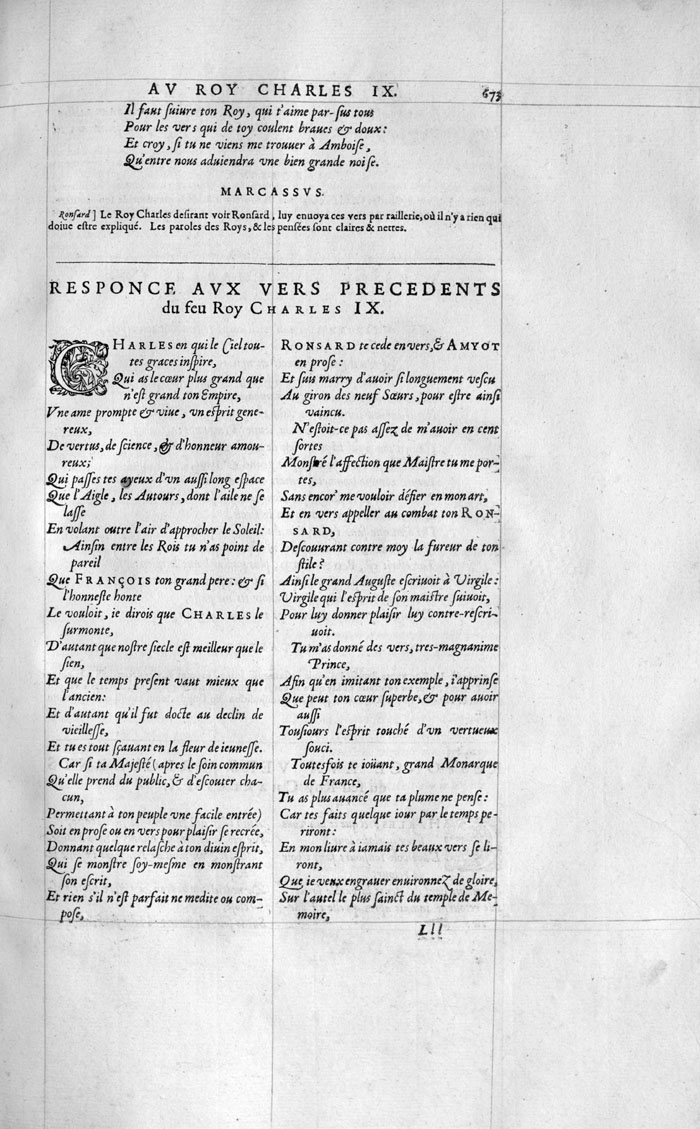 AV ROY CHARLES IX. 673
Il faut suiure ton Roy, qui t'aime par-sus tous
Pour les vers qui de toy coulent braues & doux:
Et croy, si tu ne viens me trouuer à Amboise,
Qu'entre nous aduiendra vne bien grande noise.
MARCASSVS.
Ronsard] Le Roy Charles desirant voir Ronsard, luy enuoya ces vers par raillerie, où il n'y a rien qui
doiue estre expliqué. Les paroles des Roys, & les pensées sont claires & nettes.
RESPONCE AVX VERS PRECEDENTS
du feu Roy CHARLES IX.
CHARLES en qui le Ciel tou-
tes graces inspire,
Qui as le cœur plus grand que
n'est grand ton Empire,
Vne ame prompte & viue, vn esprit gene-
reux,
De vertus, de science, & d'honneur amou-
reux;
Qui passes tes ayeux d'vn aussi long espace
Que l'Aigle, les Autours, dont l'aile ne se
lasse
En volant outre l'air d'approcher le Soleil:
Ainsin entre les Rois tu n'as point de
pareil
Que FRANÇOIS ton grand pere: & si
l'honneste honte
Le vouloit, ie dirois que CHARLES le
surmonte,
D'autant que nostre siecle est meilleur que le
sien,
Et que le temps present vaut mieux que
l'ancien:
Et d'autant qu'il fut docte au declin de
vieillesse,
Et tu es tout sçauant en la fleur de ieunesse.
Car si ta Majesté (apres le soin commun
Qu'elle prend du public, & d'escouter cha-
cun,
Permettant à ton peuple vne facile entrée)
Soit en prose ou en vers pour plaisir se recrée,
Donnant quelque relasche à ton diuin esprit,
Qui se monstre soy-mesme en monstrant
son escrit,
Et rien s'il n'est parfait ne medite ou com-
pose,
RONSARD te cede en vers, & AMYOT
en prose:
Et suis marry d'auoir si longuement vescu
Au giron des neuf Sœurs, pour estre ainsi
vaincu.
N'estoit-ce pas assez de m'auoir en cent
sortes
Monstré l'affection que Maistre tu me por-
tes,
Sans encor' me vouloir défier en mon art,
Et en vers appeller au combat ton RON-
SARD,
Descouurant contre moy la fureur de ton
stile?
Ainsi le grand Auguste escriuoit à Virgile:
Virgile qui l'esprit de son maistre suiuoit,
Pour luy donner plaisir luy contre-rescri-
uoit.
Tu m'as donné des vers, tres-magnanime
Prince,
Afin qu'en imitant ton exemple, i'apprinse
Que peut ton cœur superbe, & pour auoir
aussi
Tousiours l'esprit touché d'vn vertueux
souci.
Toutesfois te ioüant, grand Monarque
de France,
Tu as plus auancé que ta plume ne pense:
Car tes faits quelque iour par le temps pe-
riront:
En mon liure à iamais tes beaux vers se li-
ront,
Que ie veux engrauer enuironnez de gloire,
Sur l'autel le plus sainct du temple de Me-
moire,
Lll